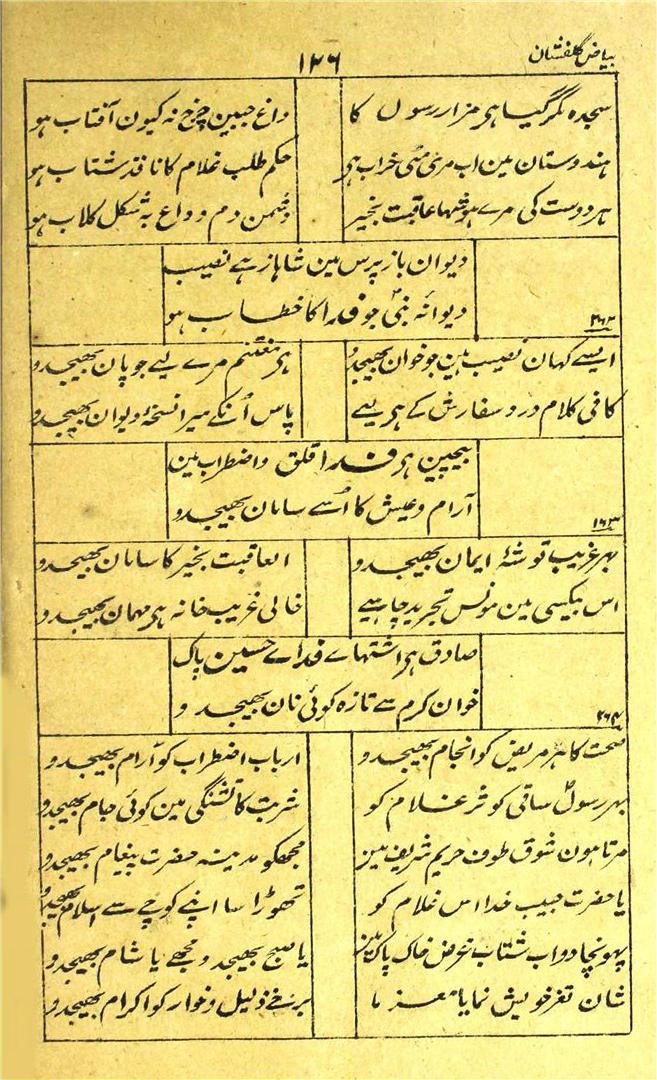 بیاض گلفشان
۱۲۶
سجدہ مگر کیا ہر مزار رسول کا داغ جبین چرخ نہ کیون آفتاب ہو
ہندوستان مین اب مری مٹی خراب ہر حکم طلب غلام کا نافذ شتاب ہو
ہر دوست کی مرے ہو شہا عاقبت بخیر دشمن دم وداع بشکل کلاب ہو
دیوان بازپرس مین شاہا زہے نصیب
دیوانہ نبی جو فدا کا خطاب ہو
۲۶۲
ایسے کہان نصیب ہین جو خوان بھیجدو ہر مغتنم مرے لیے جو پان بھیجدو
کافی کلام درد سفارش کے ہر لیے پاس اُنکے میرا نسخۂ دیوان بھیجدو
بیچین ہر فدا قلق و اضطراب مین
آرام و عیش کا اُسے سامان بھیجدو
۱۶۳
بہر غریب توشۂ ایمان بھیجدو العاقبت بخیر کا سامان بھیجدو
اس بیکسی مین مونس تجرید چاہیے خالی غریب خانہ ہر مہمان بھیجدو
صادق ہر اشتہاے فداے حسین پاک
خوان کرم سے تازہ کوئی نان بھیجدو
۲۶۴
صحت کا ہر مریض کو انجام بھیجدو ارباب اضطراب کو آرام بھیجدو
بہر رسول ساقی کوثر غلام کو شربت کا تشنگی مین کوئی جام بھیجدو
مرتا ہون شوق طوف حریم شریف مین مجھکو مدینہ حضرت پیغام بھیجدو
یا حضرت حبیب خدا اس غلام کو تھوڑا سا اپنے کوچے سے اسلام بھیجدو
پہونچا دو اب شتاب غرض خاک پاک مین یا صبح بھیجدو مجھے یا شام بھیجدو
شان تعز خویش نمایا معز ما برخے ذلیل و خوار کو اکرام بھیجدو